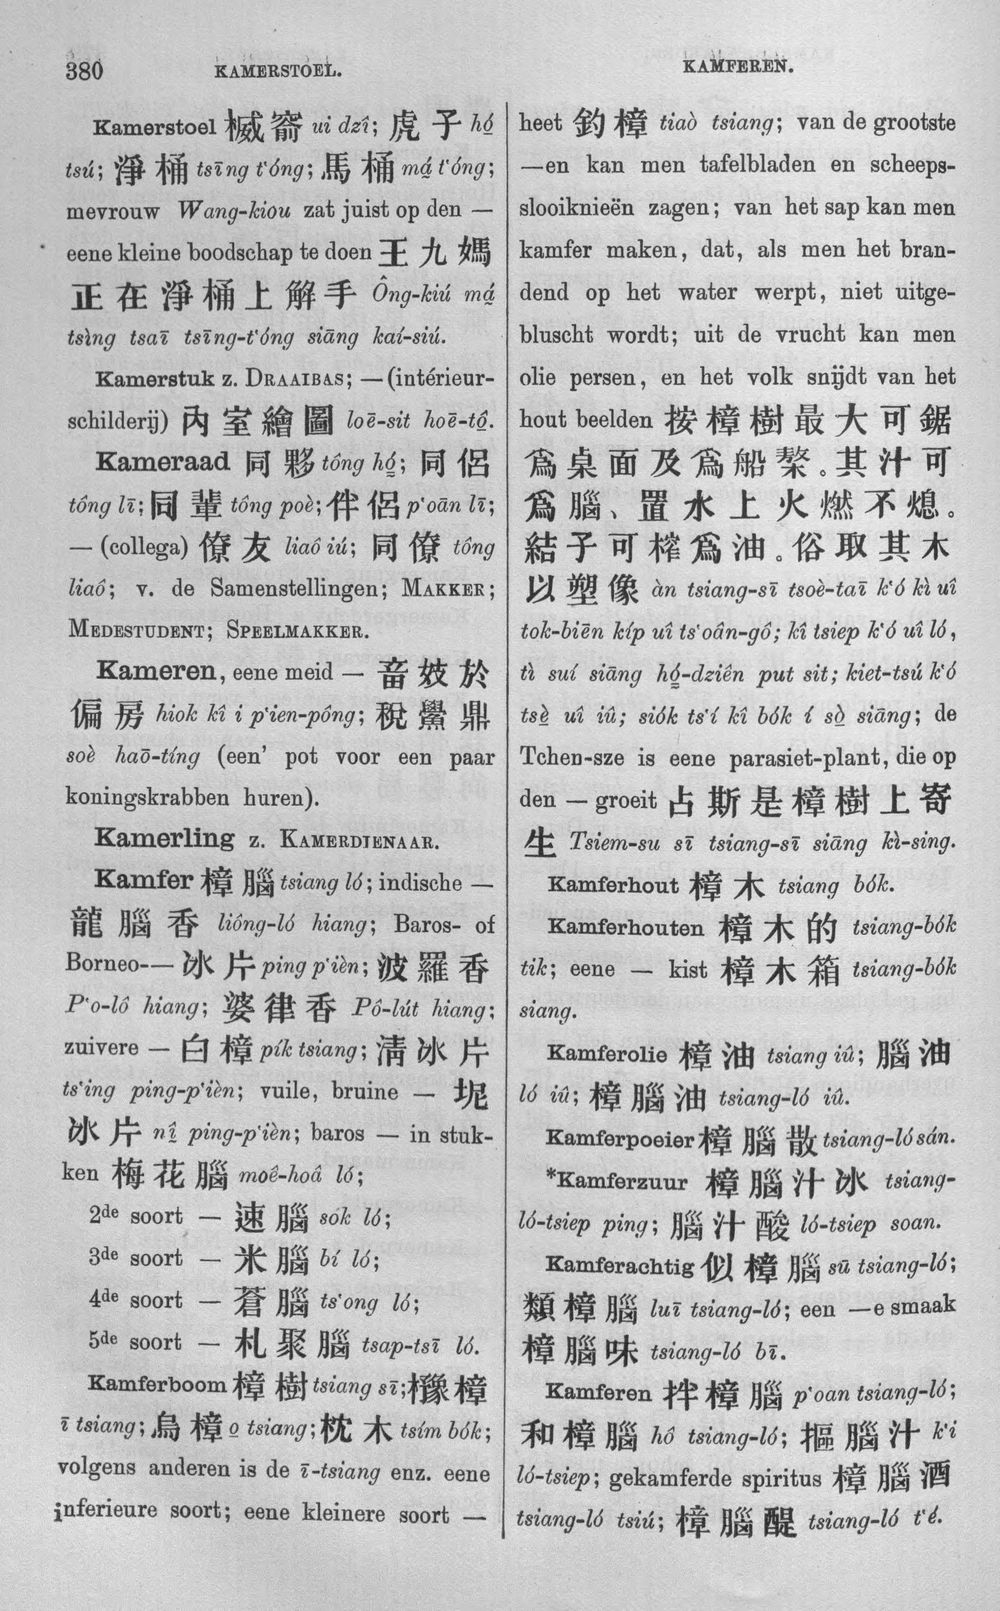 380
KAMERSTOEL.
KAMFEREN.
Kamerstoel 楲窬 ui dzî; 虎子 hó̤
tsú; 淨桶 tsīng t'óng; 馬桶 má̤ t'óng;
mevrouw Wang-kiou zat juist op den —
eene kleine boodschap te doen 王九媽
正在淨桶上解手 Ông-kiú má̤
tsìng tsaī tsīng-t'óng siāng kaí-siú.
Kamerstuk z. DRAAIBAS; — (intérieur-
schilderij) 內室繪圖 loē-sit hoē-tô̤.
Kameraad 同夥 tông hó̤; 同侶
tông lī; 同輩 tông poè; 伴侶 p'oān lī;
— (collega) 僚友 liaô iú; 同僚 tông
liaô; v. de Samenstellingen; MAKKER;
MEDESTUDENT; SPEELMAKKER.
Kameren, eene meid — 畜妓於
偏房 hiok kî i p'ien-pông; 稅鱟鼎
soè haō-tíng (een' pot voor een paar
koningskrabben huren).
Kamerling z. KAMERDIENAAR.
Kamfer 樟腦 tsiang ló; indische —
龍腦香 liông-ló hiang; Baros- of
Borneo-— 冰片 ping p'ièn;波羅香
P'o-lô hiang; 婆律香 Pô-lút hiang;
zuivere — 白樟 pík tsiang; 清冰片
ts'ing ping-p'ièn; vuile, bruine — 坭
冰片 nî̤ ping-p'ièn; baros — in stuk-
ken 梅花腦 moê-hoâ ló;
2de soort — 速腦 sok ló;
3de soort — 米腦 bí ló;
4de soort — 蒼腦 ts'ong ló;
5de soort — 札聚腦 tsap-tsī ló.
Kamferboom 樟樹 tsiang sī; 櫲樟
ī tsiang; 烏樟 o̤ tsiang; 枕木 tsím bók;
volgens anderen is de ī-tsiang enz. eene
inferieure soort; eene kleinere soort —
heet 釣樟 tiaò tsiang; van de grootste
—en kan men tafelbladen en scheeps-
slooiknieën zagen; van het sap kan men
kamfer maken, dat, als men het bran-
dend op het water werpt, niet uitge-
bluscht wordt; uit de vrucht kan men
olie persen, en het volk snijdt van het
hout beelden 按樟樹最大可鋸
爲桌面及爲船檠。其汁可
爲腦、置水上火燃不熄。
結子可榨爲油。俗取其木
以塑像 àn tsiang-sī tsoè-taī k'ó kì uî
tok-biēn kíp uî ts'oân-gô; kî tsiep k'ó uî ló,
tì suí siāng hó̤-dziên put sit; kiet-tsú k'ó
tsè̤ uî iû; siók ts'í kî bók í sò̤ siāng; de
Tchen-sze is eene parasiet-plant, die op
den — groeit 占斯是樟樹上寄
生 Tsiem-su sī tsiang-sī siāng kì-sing.
Kamferhout 樟木 tsiang bók.
Kamferhouten 樟木的 tsiang-bók
tik; eene — kist 樟木箱 tsiang-bók
siang.
Kamferolie 樟油 tsiang iû; 腦油
ló iû; 樟腦油 tsiang-ló iû.
Kamferpoeier 樟腦散 tsiang-ló sán.
*Kamferzuur 樟腦汁冰 tsiang-
ló-tsiep ping; 腦汁酸 ló-tsiep soan.
Kamferachtig 似樟腦 sū tsiang-ló;
類樟腦 luī tsiang-ló; een —e smaak
樟腦味 tsiang-ló bī.
Kamferen 拌樟腦 p'oan tsiang-ló;
和樟腦 hô tsiang-ló; 摳腦汁 k'i
ló-tsiep; gekamferde spiritus 樟腦酒
tsiang-ló tsiú; 樟腦醍 tsiang-ló t'é.